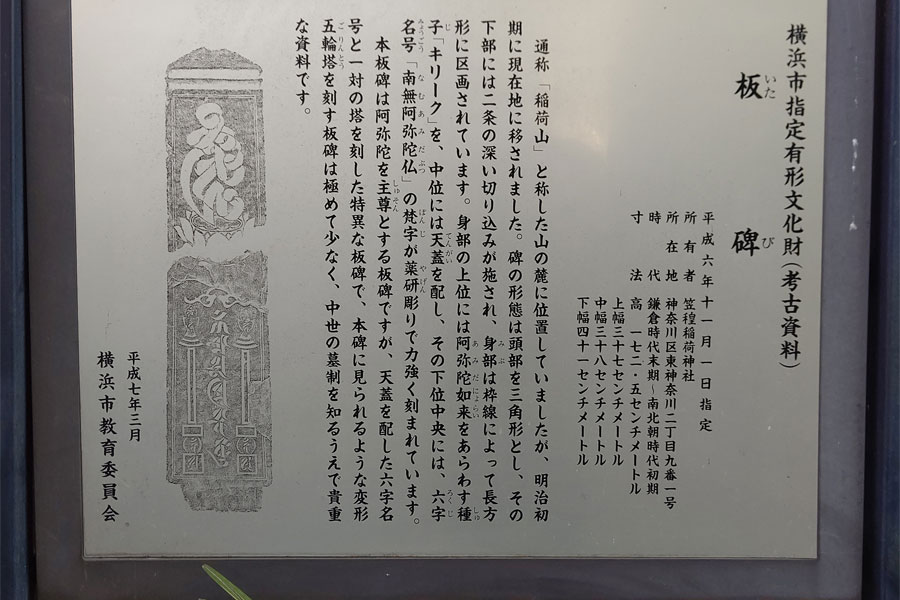 横浜市指定有形文化財(考古資料)
板碑
いたび
平成六年十一月一日指定
所有者 笠䅣稲荷神社
所在地 神奈川区東神奈川二丁目九番一号
時代 鎌倉時代末期～南北朝時代初期
寸法 高 一七二・五センチメートル
上幅三十七センチメートル
中幅三十八センチメートル
下幅四十一センチメートル
通称「稲荷山」と称した山の麓に位置していましたが、明治初
期に現在地に移されました。碑の形態は頭部を三角形とし、その
下部には二条の深い切り込みが施され、身部は枠線によって長方
形に区画されています。身部の上位には阿弥陀如来をあらわす種
子「キリーク」を、中位には天蓋を配し、その下位中央には、六字
名号「南無阿弥陀仏」の梵字が薬研彫りで力強く刻まれています。
本板碑は阿弥陀を主尊とする板碑ですが、天蓋を配した六字名
号と一対の塔を刻した特異な板碑で、本碑に見られるような変形
五輪塔を刻す板碑は極めて少なく、中世の墓制を知るうえで貴重
な資料です。
平成七年三月
横浜市教育委員会